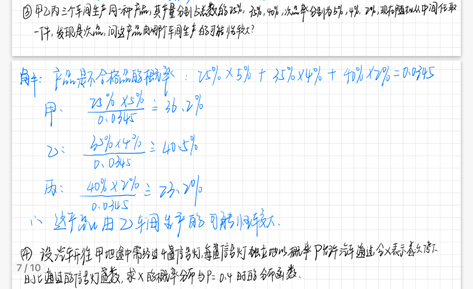 ③ 甲乙丙三个车间生产同一种产品,其产量分别占总数的25%, 35%, 40%, 次品率分别为5%, 4%, 2%, 现在从中任取
一件,发现是次品,问这产品由哪个车间生产的可能性较大?
解: 产品是不合格品的概率: 25%×5% + 35%×4% + 40%×2% = 0.0345
甲: 25%×5% / 0.0345 ≐ 36.2%
乙: 35%×4% / 0.0345 ≐ 40.5%
丙: 40%×2% / 0.0345 ≐ 23.2%
∴ 这产品由乙车间生产的可能性较大.
④ 设汽车开往甲地途中需经过4盏信号灯,每盏信号灯独立地以概率P允许汽车通过,令X表示首次停下
时已通过的信号灯盏数,求X的概率分布与P=0.4时的分布函数.
7 / 10